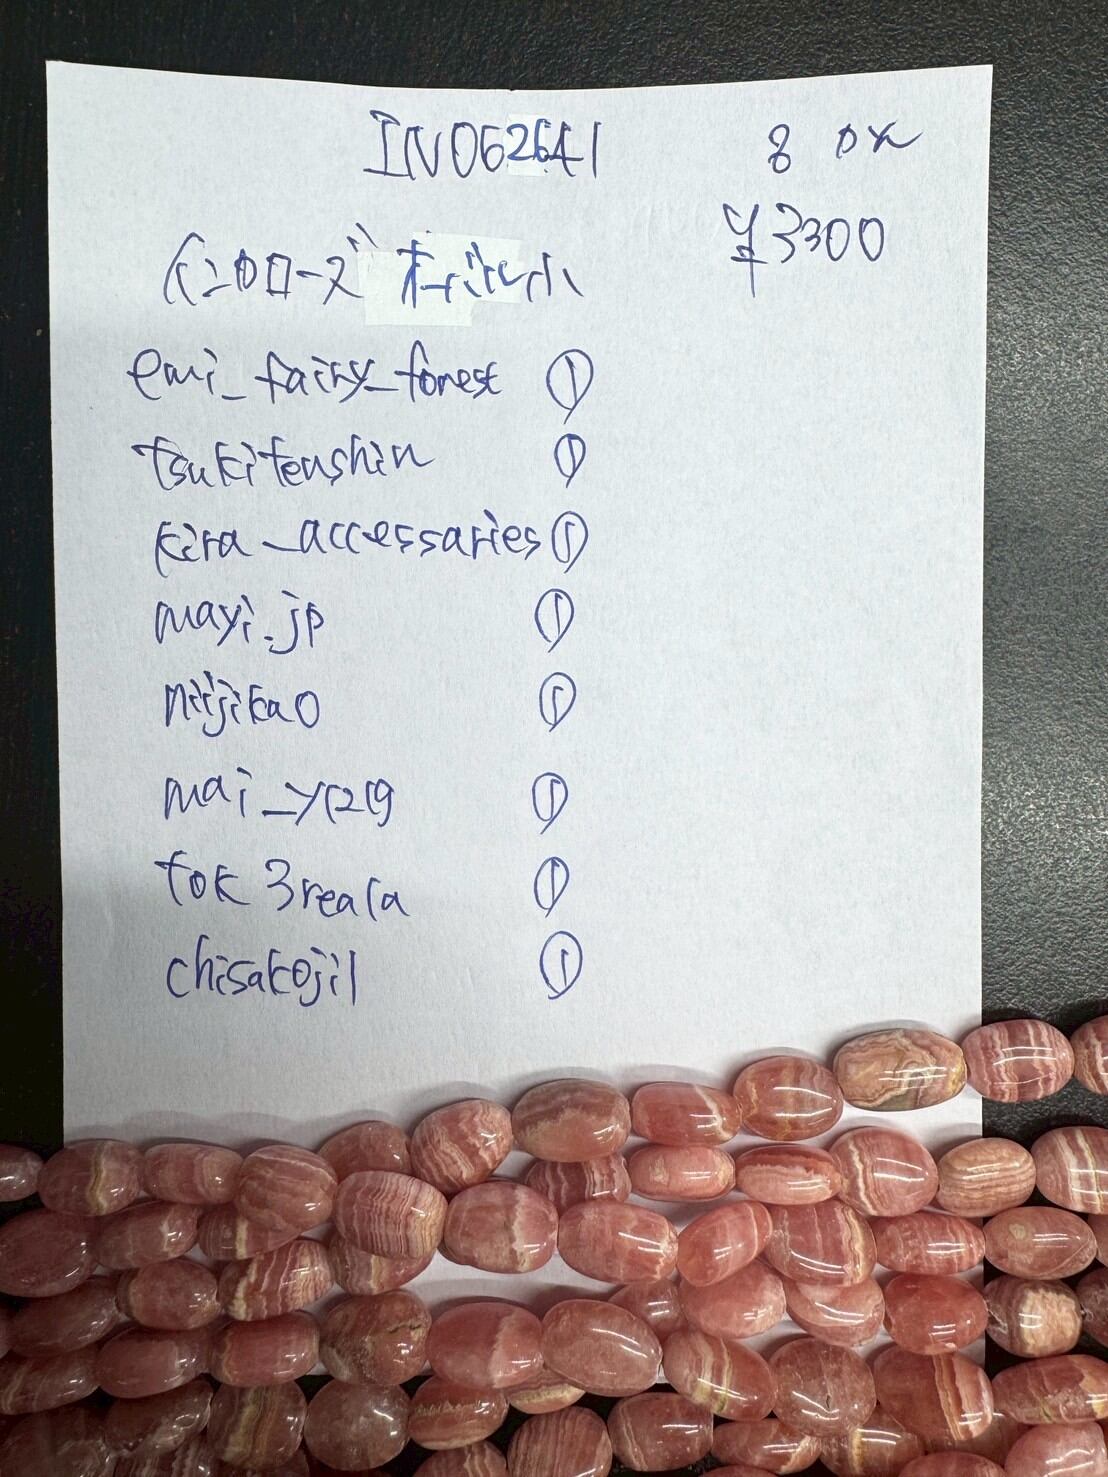 IN062641
8 px
¥3300
インカローズ
emi_fairy_forest ①
tsukitenshin ①
kira_accessaries ①
mayi.jp ①
nijikao ①
mai_y229 ①
tok3reala ①
chisakoji1 ①